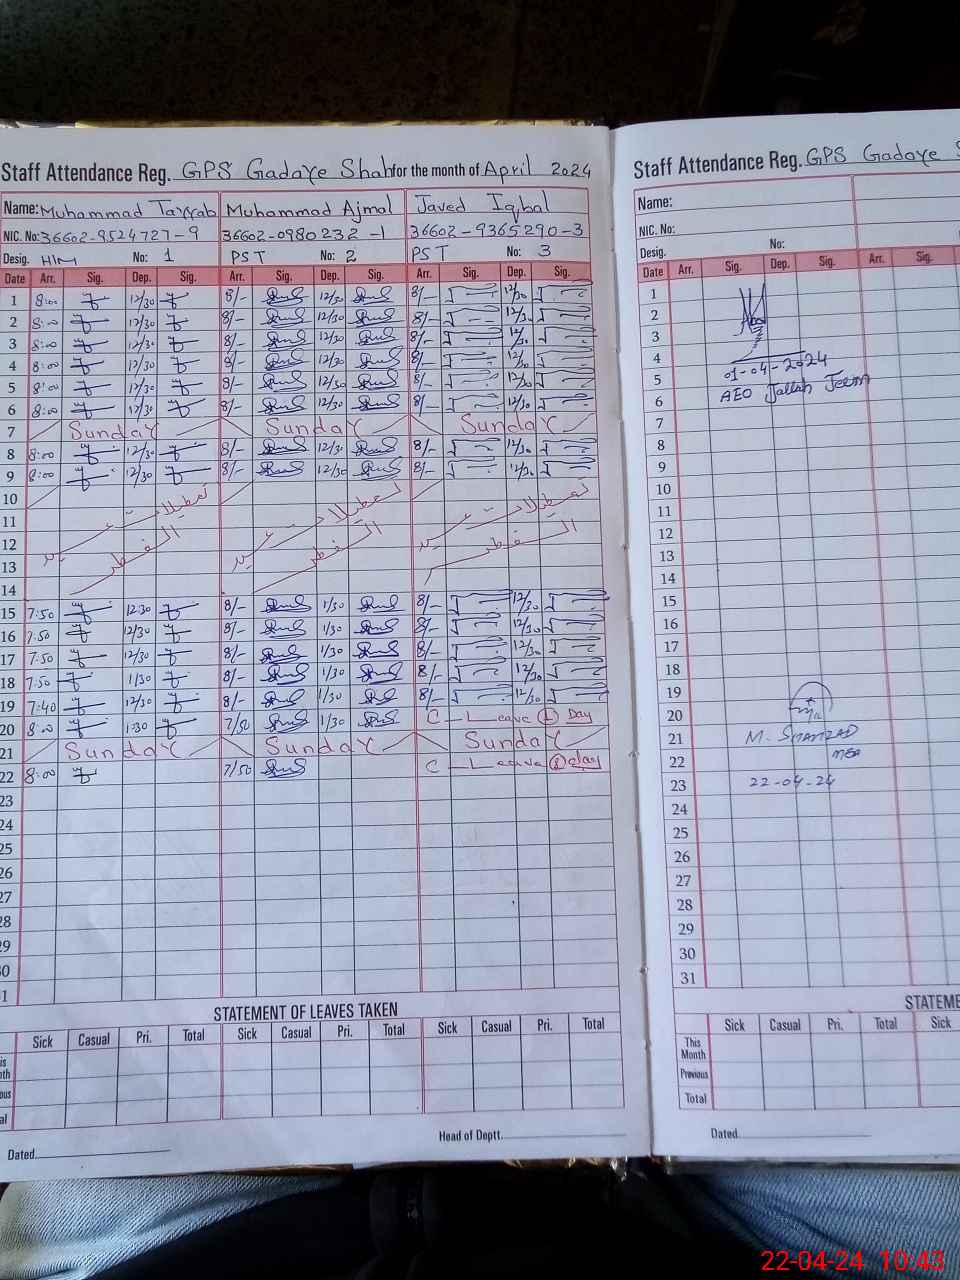 Staff Attendance Reg. GPS Gadaye Shah for the month of April 2024
Name: Muhammad Tayyab Muhammad Ajmal Javed Iqbal
NIC. No: 36602-9524727-9 36602-0980232-1 36602-9365290-3
Desig. H/M No: 1 PST No: 2 PST No: 3
Date Arr. Sig. Dep. Sig. Arr. Sig. Dep. Sig. Arr. Sig. Dep. Sig.
1 8:00 12/30 8/- 12/30 8/- 12/30
2 8:00 12/30 8/- 12/30 8/- 12/30
3 8:00 12/30 8/- 12/30 8/- 12/30
4 8:00 12/30 8/- 12/30 8/- 12/30
5 8:00 12/30 8/- 12/30 8/- 12/30
6 8:00 12/30 8/- 12/30 8/- 12/30
7 Sunday Sunday Sunday
8 8:00 12/30 8/- 12/30 8/- 12/30
9 8:00 12/30 8/- 12/30 8/- 12/30
10
11 تعطیلات عید تعطیلات عید تعطیلات عید
12 الفطر الفطر الفطر
13
14
15 7:50 12:30 8/- 1/30 8/- 12/30
16 7:50 12/30 8/- 1/30 8/- 12/30
17 7:50 12/30 8/- 1/30 8/- 12/30
18 7:50 1/30 8/- 1/30 8/- 12/30
19 7:40 12/30 8/- 1/30 8/- 12/30
20 8:00 1:30 7/50 1/30 C-Leave 1 Day
21 Sunday Sunday Sunday
22 8:00 7/50 C-Leave day
23
24
25
26
27
28
29
30
31
STATEMENT OF LEAVES TAKEN
Sick Casual Pri. Total Sick Casual Pri. Total Sick Casual Pri. Total
Head of Deptt.
Dated
Staff Attendance Reg. GPS Gadaye
Name:
NIC. No:
Desig. No:
Date Arr. Sig. Dep. Sig. Arr. Sig.
1
2
3
4
01-04-2024
5
AEO Jallah Jeem
6
7
8
9
10
11
12
13
14
15
16
17
18
19
20
21 M. SHAHZAD
22 MEA
23 22-04-24
24
25
26
27
28
29
30
31
STATEME
Sick Casual Pri. Total Sick
This Month
Previous
Total
Dated
22-04-24 10:43